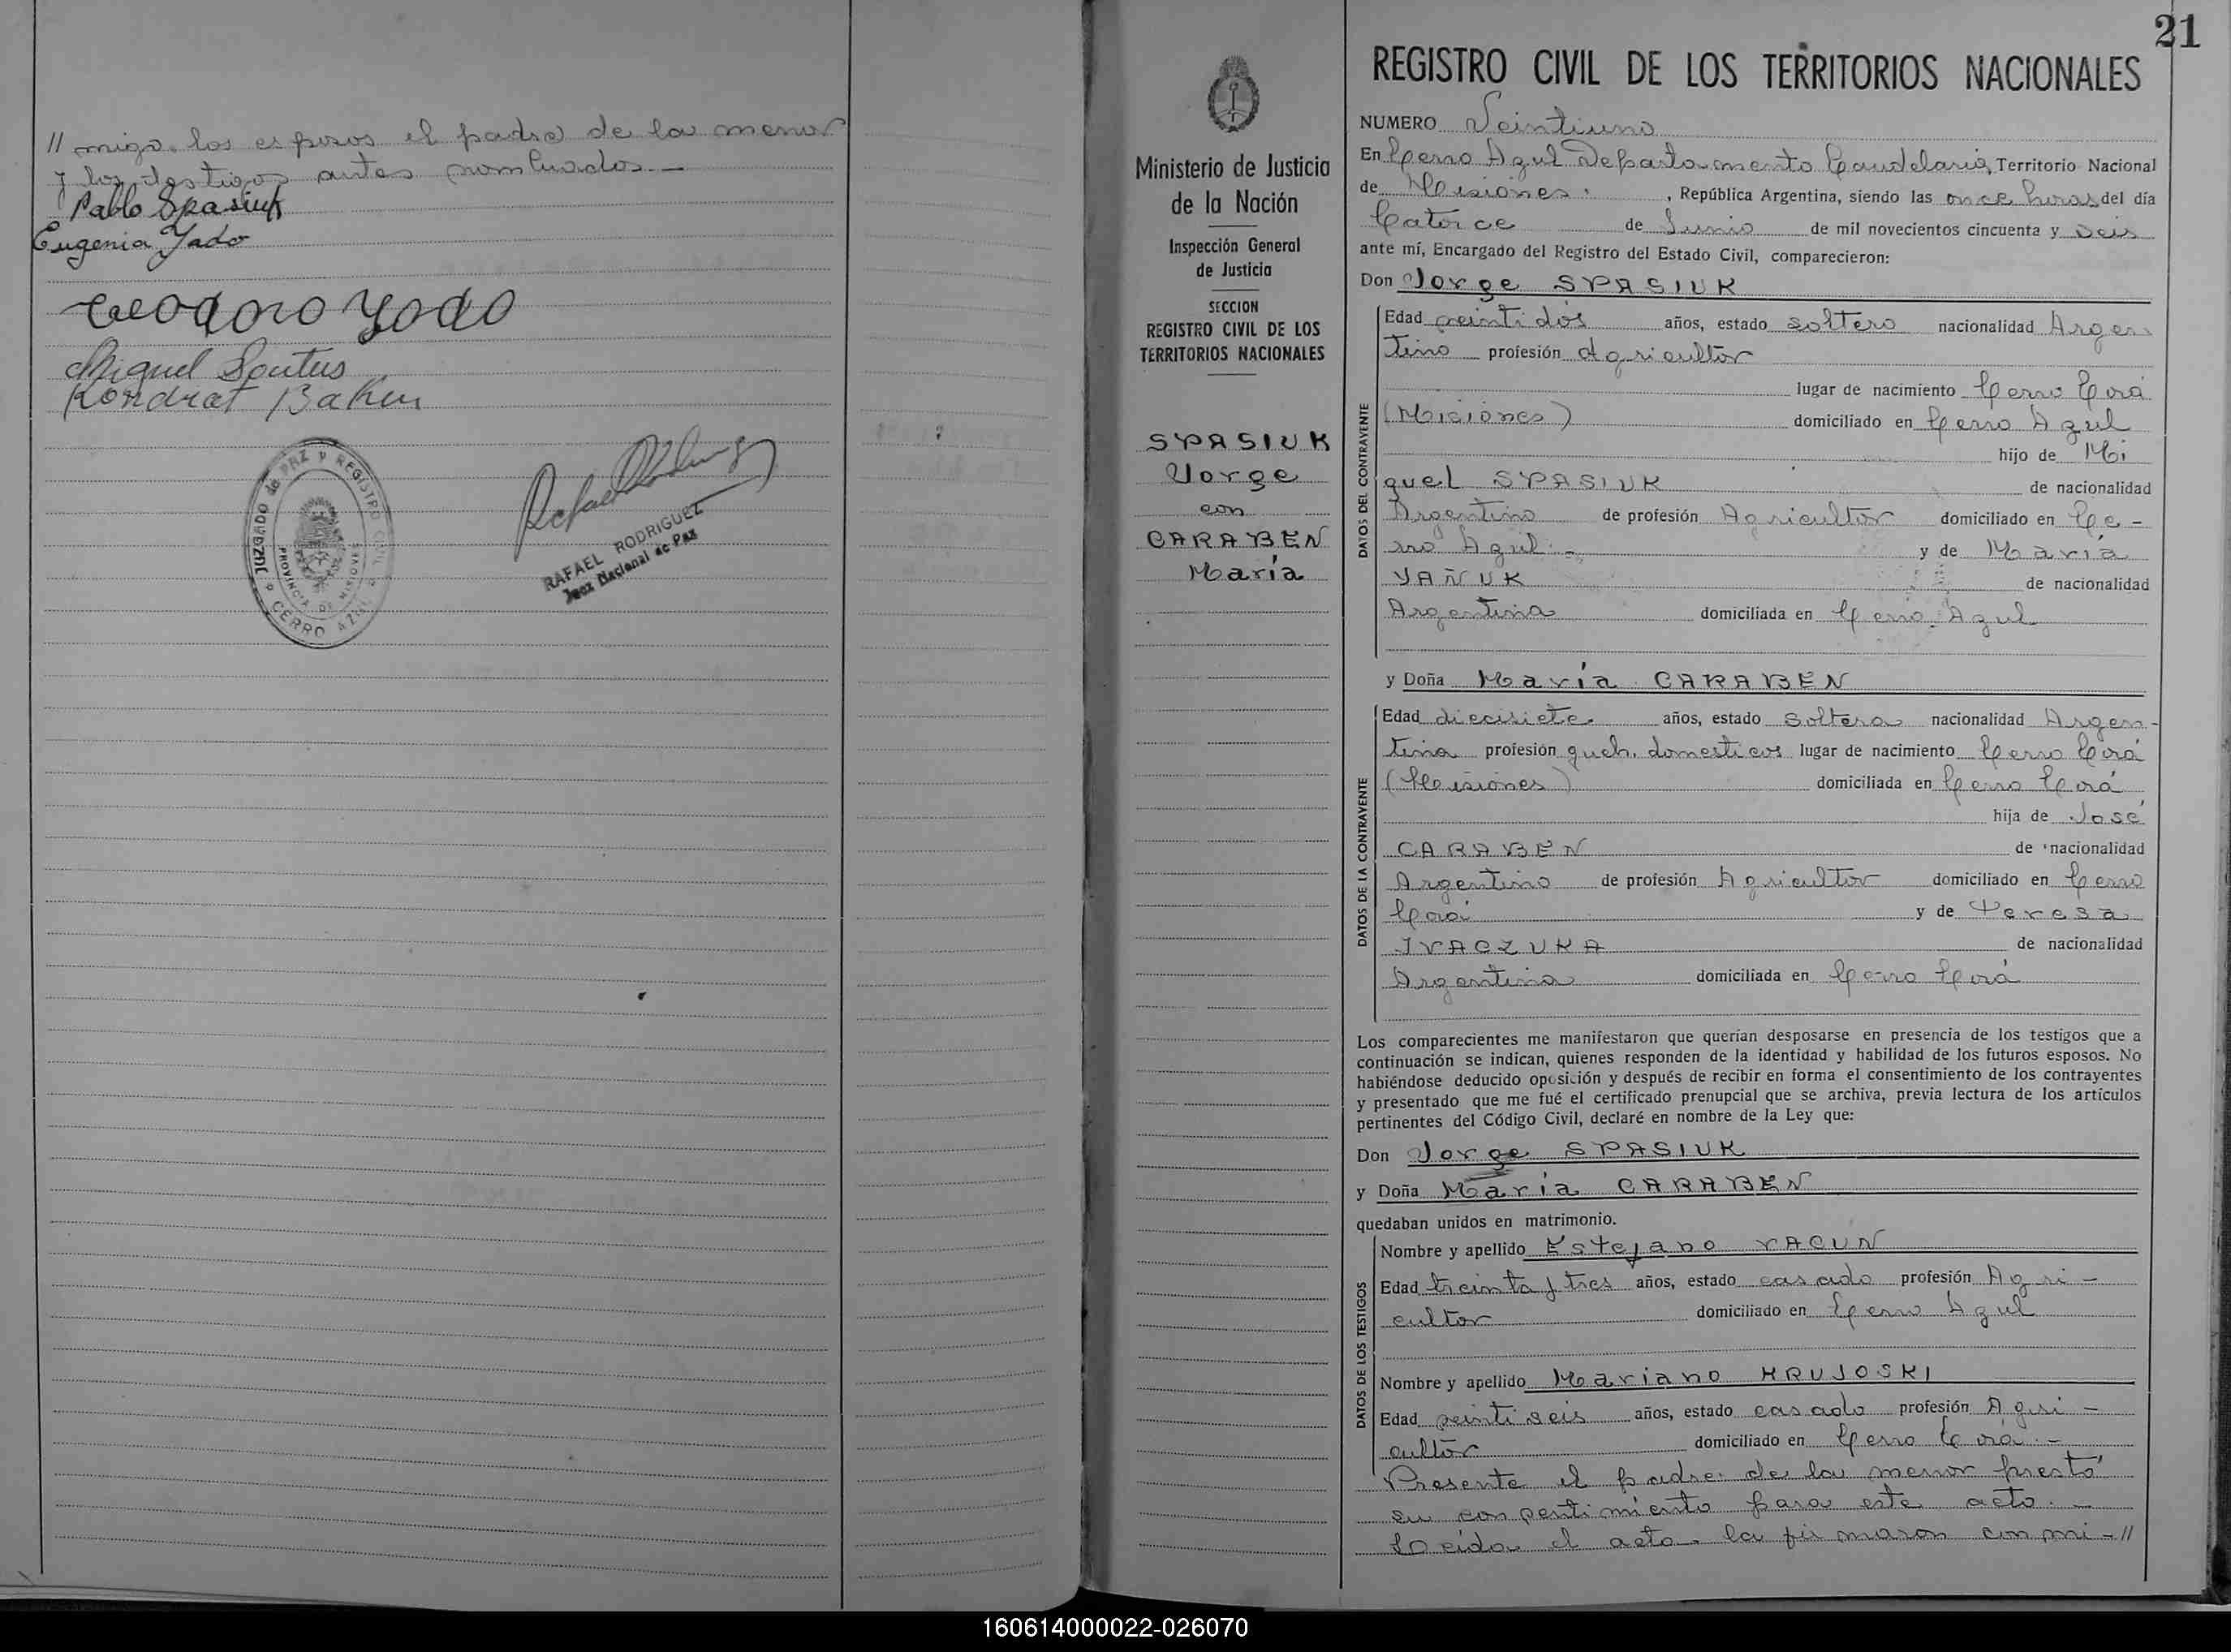 // migo los esposos el padre de la menor
y los testigos antes nombrados.—
Pablo Spasiuk
Eugenia Yado
Teodoro Yado
Miguel
Kondrat
JUZGADO de PAZ y REGISTRO CIVIL
PROVINCIA DE MISIONES
CERRO AZUL
RAFAEL RODRIGUEZ
Juez Nacional de Paz
21
Ministerio de Justicia
de la Nación
Inspección General
de Justicia
SECCION
REGISTRO CIVIL DE LOS
TERRITORIOS NACIONALES
SPASIUK
Jorge
con
CARABEN
María
REGISTRO CIVIL DE LOS TERRITORIOS NACIONALES
NUMERO Veintiuno
En Cerro Azul Departamento Candelaria, Territorio Nacional
de Misiones, República Argentina, siendo las once horas del día
Catorce de Junio de mil novecientos cincuenta y seis
ante mí, Encargado del Registro del Estado Civil, comparecieron:
Don Jorge SPASIUK
DATOS DEL CONTRAYENTE
Edad veintidós años, estado soltero nacionalidad Argen-
tino profesión Agricultor
lugar de nacimiento Cerro Corá
(Misiones) domiciliado en Cerro Azul
hijo de Mi
guel SPASIUK de nacionalidad
Argentino de profesión Agricultor domiciliado en Ce-
rro Azul.- y de María
YAÑUK de nacionalidad
Argentina domiciliada en Cerro Azul
y Doña María CARABEN
DATOS DE LA CONTRAYENTE
Edad diecisiete años, estado soltera nacionalidad Argen-
tina profesión queh. domesticos lugar de nacimiento Cerro Corá
(Misiones) domiciliada en Cerro Corá
hija de José
CARABEN de nacionalidad
Argentino de profesión Agricultor domiciliado en Cerro
Corá y de Teresa
IVACZUKA de nacionalidad
Argentina domiciliada en Cerro Corá
Los comparecientes me manifestaron que querían desposarse en presencia de los testigos que a
continuación se indican, quienes responden de la identidad y habilidad de los futuros esposos. No
habiéndose deducido oposición y después de recibir en forma el consentimiento de los contrayentes
y presentado que me fué el certificado prenupcial que se archiva, previa lectura de los artículos
pertinentes del Código Civil, declaré en nombre de la Ley que:
Don Jorge SPASIUK
y Doña María CARABEN
quedaban unidos en matrimonio.
DATOS DE LOS TESTIGOS
Nombre y apellido Estefano YACUN
Edad treinta y tres años, estado casado profesión Agri-
cultor domiciliado en Cerro Azul
Nombre y apellido Mariano HRUJOSKI
Edad veintiseis años, estado casado profesión Agri-
cultor domiciliado en Cerro Corá.-
Presente el padre de la menor prestó
su consentimiento para este acto.-
Leída el acta la firmaron conmi-//
160614000022-026070